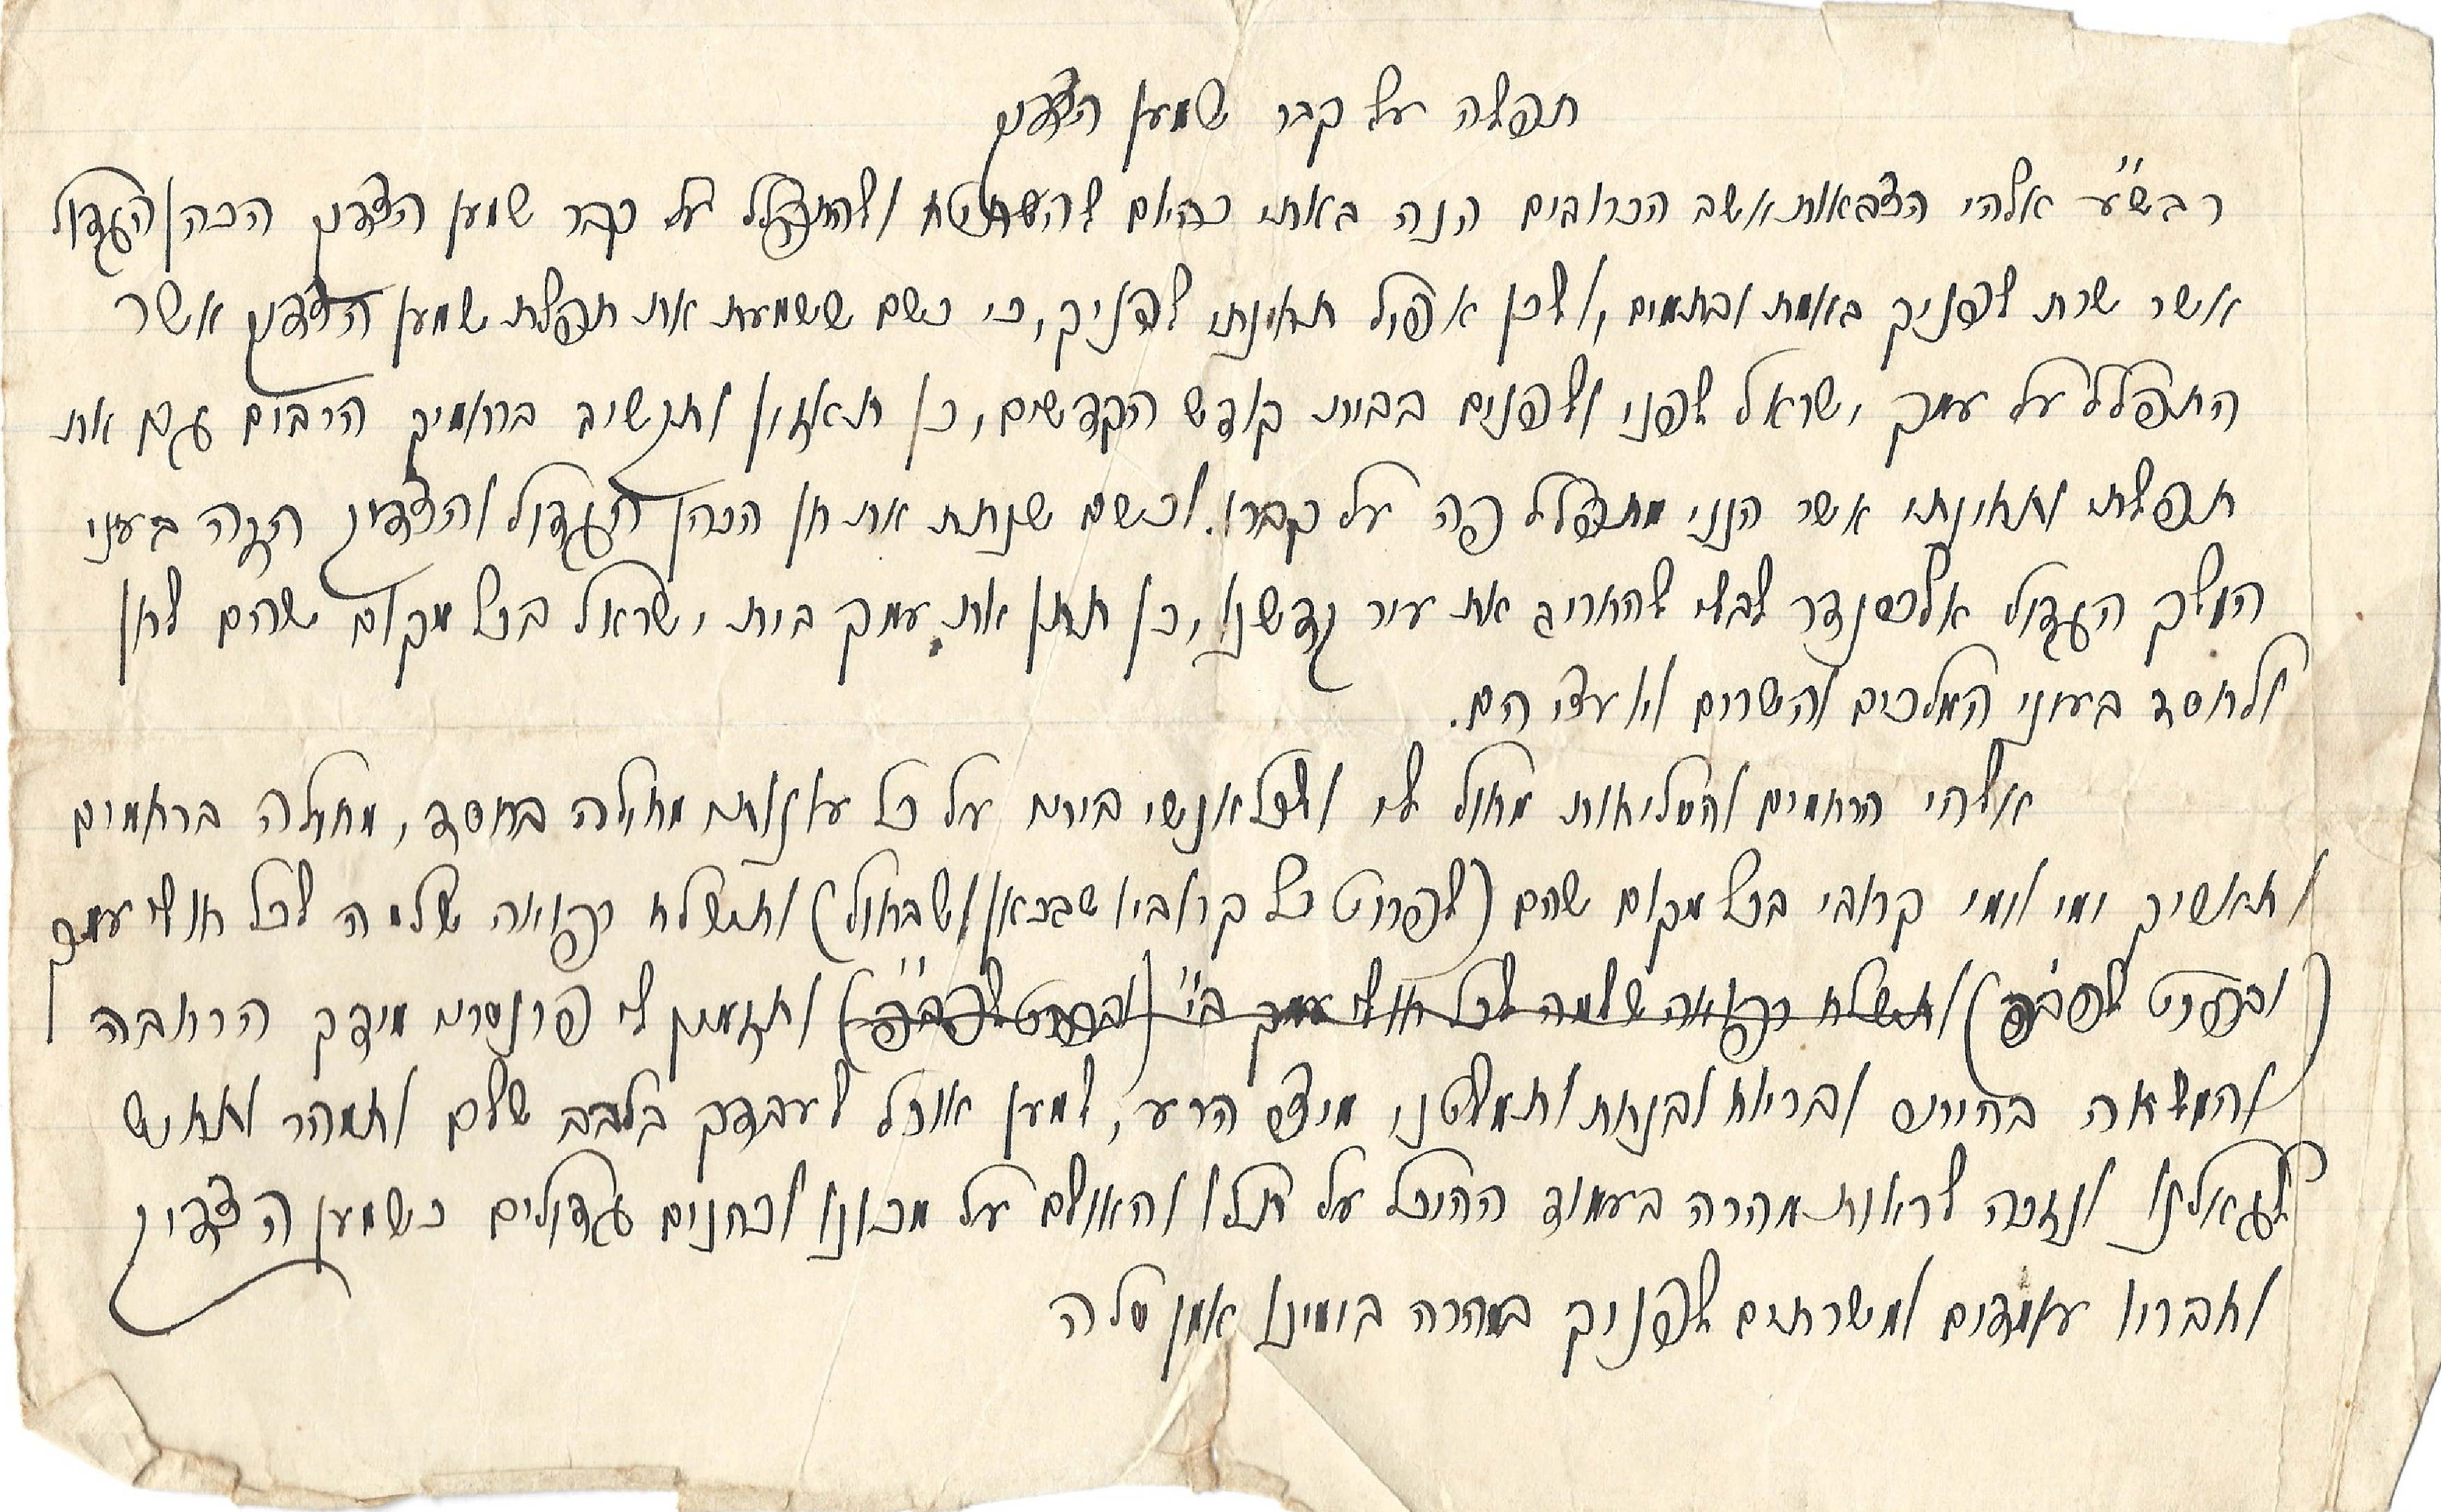 תפלה על קבר שמעון הצדיק
רבש"ע אלהי הצבאות יושב הכרובים הנה באתי כהיום להשתטח ולהתפלל על קבר שמעון הצדיק הכהן הגדול
אשר שרת לפניך באמת ובתמים, ולכן אפיל תחינתי לפניך, כי כשם ששמעת את תפלת שמעון הצדיק אשר
התפלל על עמך ישראל לפני ולפנים בבית קודש הקדשים, כן תאזין ותקשיב ברחמיך הרבים גם את
תפלתי ותחינתי אשר הנני מתפלל פה על קברו. וכשם שנתת את חן הכהן הגדול והצדיק הזה בעיני
המלך הגדול אלכסנדר לבלי להחריב את עיר קדשנו, כן תתן את עמך בית ישראל בכל מקום שהם לחן
ולחסד בעיני המלכים והשרים ויועציהם.
אלהי הרחמים והסליחות מחול לי ולכל אנשי ביתי על כל עונותי מחילה בחסד, מחילה ברחמים
ותאריך ימי וימי קרובי בכל מקום שהם (לפרוט כל קרוביו שבכאן ושבחול) ותשלח רפואה שלמה לכל חולי עמך
(ובפרט לפב"פ) ותשלח רפואה שלמה לכל חולי עמך ב"י (ובפרט לפב"פ) ותזמין לי פרנסתי מידך הרחבה
והמלאה בהיתר ובריוח ובנחת ותמלטני מיצר הרע, למען אוכל לעבדך בלבב שלם ותמהר ותחיש
לגאלנו ונזכה לראות מהרה בעמוד ההיכל על תלו והאולם על מכונו וכהנים גדולים כשמעון הצדיק
וחבריו עומדים ומשרתים לפניך במהרה בימינו אמן סלה